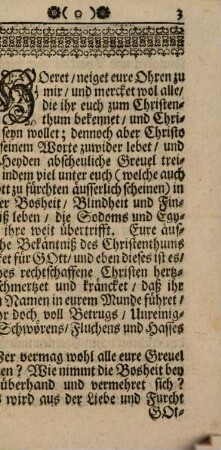 ( o ) 3
Hoeret / neiget eure Ohren zu
mir / und mercket wol alle /
die ihr euch zum Christen-
thum bekennet / und Chri-
seyn wollet ; dennoch aber Christo
seinem Worte zuwider lebet / und
Heyden abscheuliche Greuel trei-
indem viel unter euch ( welche auch
tt zu fürchten äusserlich scheinen ) in
er Bosheit / Blindheit und Fin-
ß leben / die Sodoms und Egy-
ihre weit übertrifft. Eure äus-
che Bekäntniß des Christenthums
ket für GOtt / und eben dieses ist es /
hes rechtschaffene Christen hertz-
schmertzet und kräncket / daß ihr
n Namen in eurem Munde führet /
hr doch voll Betrugs / Unreinig-
Schwörens / Fluchens und Hasses
Wer vermag wohl alle eure Greuel
en ? Wie nimmt die Bosheit bey
überhand und vermehret sich ?
s wird aus der Liebe und Furcht
GOt-